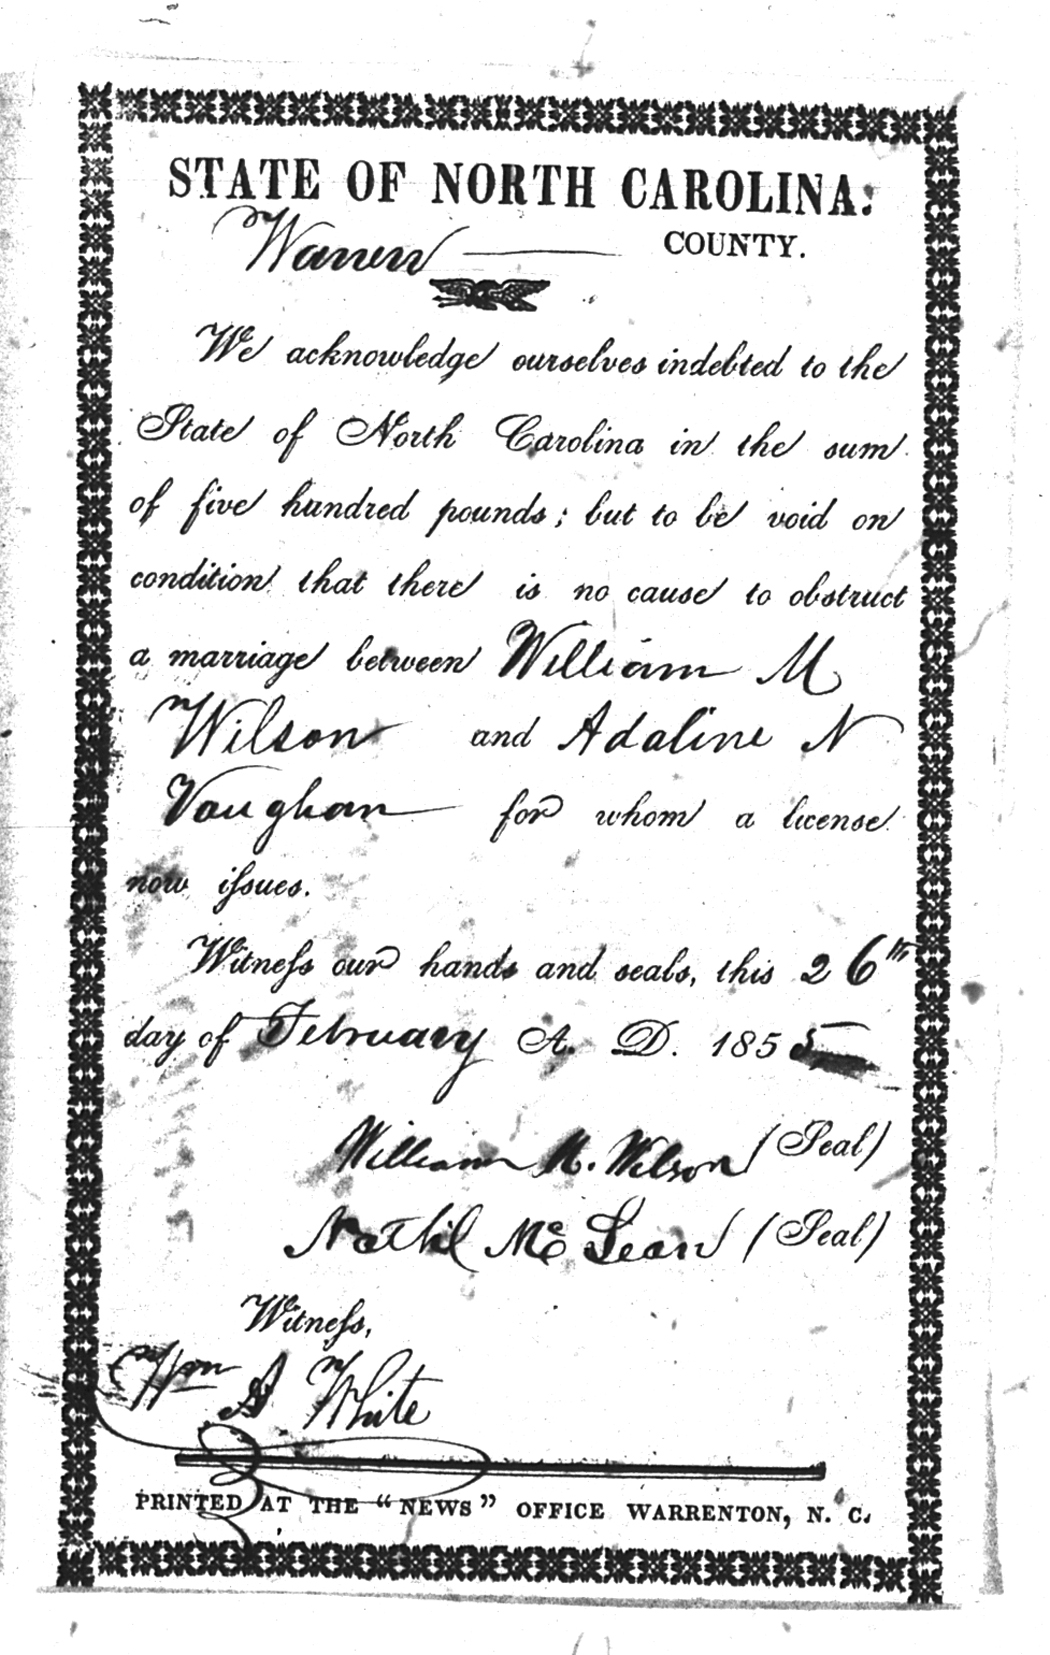 STATE OF NORTH CAROLINA:
Warren COUNTY.
We acknowledge ourselves indebted to the
State of North Carolina in the sum
of five hundred pounds; but to be void on
condition that there is no cause to obstruct
a marriage between William M
Wilson and Adaline N
Vaughan for whom a license
now ifsues.
Witnefs our hands and seals, this 26th
day of February A. D. 1855
William M. Wilson (Seal)
Nathl McLean (Seal)
Witnefs,
Wm A White
PRINTED AT THE "NEWS" OFFICE WARRENTON, N. C.